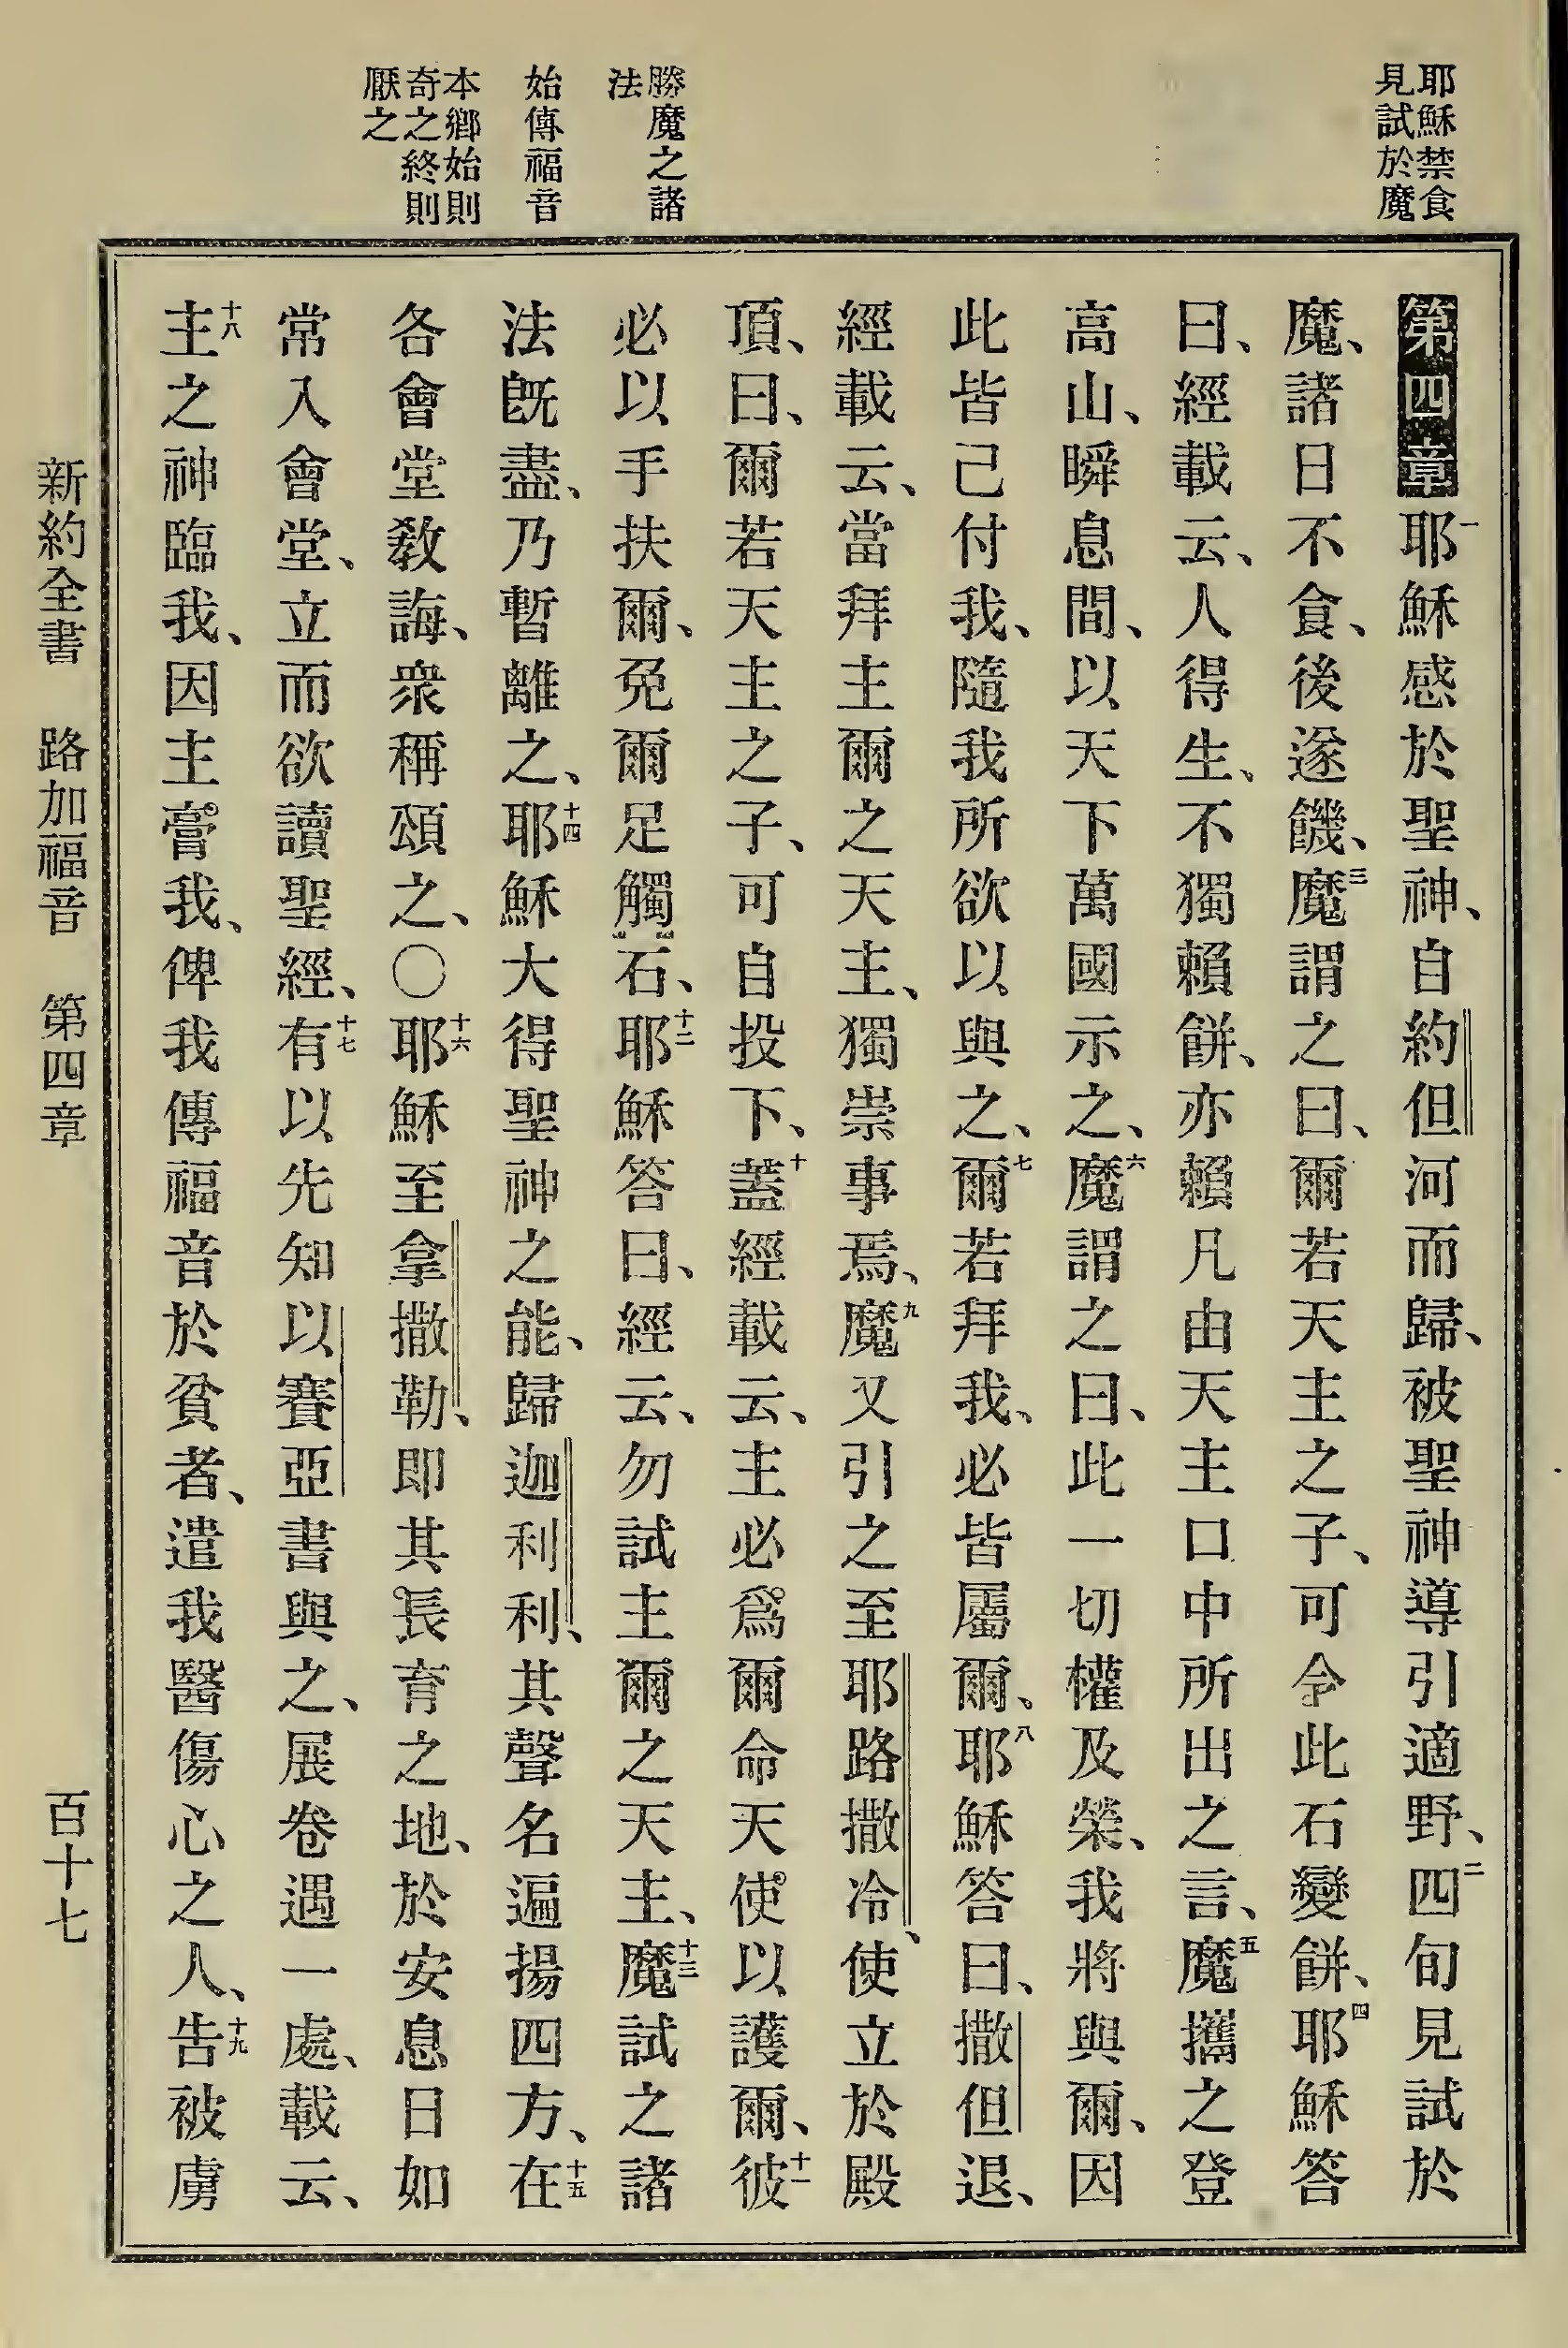 耶穌禁食
見試於魔
勝魔之諸
法
始傳福音
本鄉始則
奇之終則
厭之
第四章一耶穌感於聖神、自約但河而歸、被聖神導引適野、二四旬見試於
魔、諸日不食、後遂饑、三魔謂之曰、爾若天主之子、可令此石變餅、四耶穌答
曰、經載云、人得生、不獨賴餅、亦賴凡由天主口中所出之言、五魔攜之登
高山、瞬息間、以天下萬國示之、六魔謂之曰、此一切權及榮、我將與爾、因
此皆己付我、隨我所欲以與之、七爾若拜我、必皆屬爾、八耶穌答曰、撒但退、
經載云、當拜主爾之天主、獨崇事焉、九魔又引之至耶路撒冷、使立於殿
頂、曰、爾若天主之子、可自投下、十蓋經載云、主必爲爾命天使以護爾、十一彼
必以手扶爾、免爾足觸石、十二耶穌答曰、經云、勿試主爾之天主、十三魔試之諸
法既盡、乃暫離之、十四耶穌大得聖神之能、歸迦利利、其聲名遍揚四方、十五在
各會堂敎誨、衆稱頌之、〇十六耶穌至拿撒勒、即其長育之地、於安息日如
常入會堂、立而欲讀聖經、十七有以先知以賽亞書與之、展卷遇一處、載云、
十八主之神臨我、因主膏我、俾我傳福音於貧者、遣我醫傷心之人、十九告被虜
新約全書 路加福音 第四章 百十七